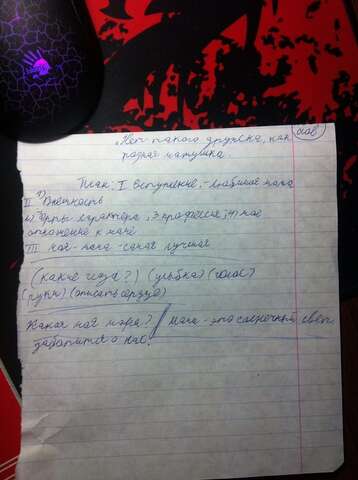 „Нет такого дружка, как
родная матушка.
План: I Вступление, - любимая мама
II 1) Внешность
2) Черты характера, 3 профессия, 4) моё
отношение к маме
III моя - мама - самая лучшая
(какие глаза?) (улыбка) (голос)
(руки) (описать сердце)
Какая моя мама? Мама - это солнечный свет
заботится о нас.